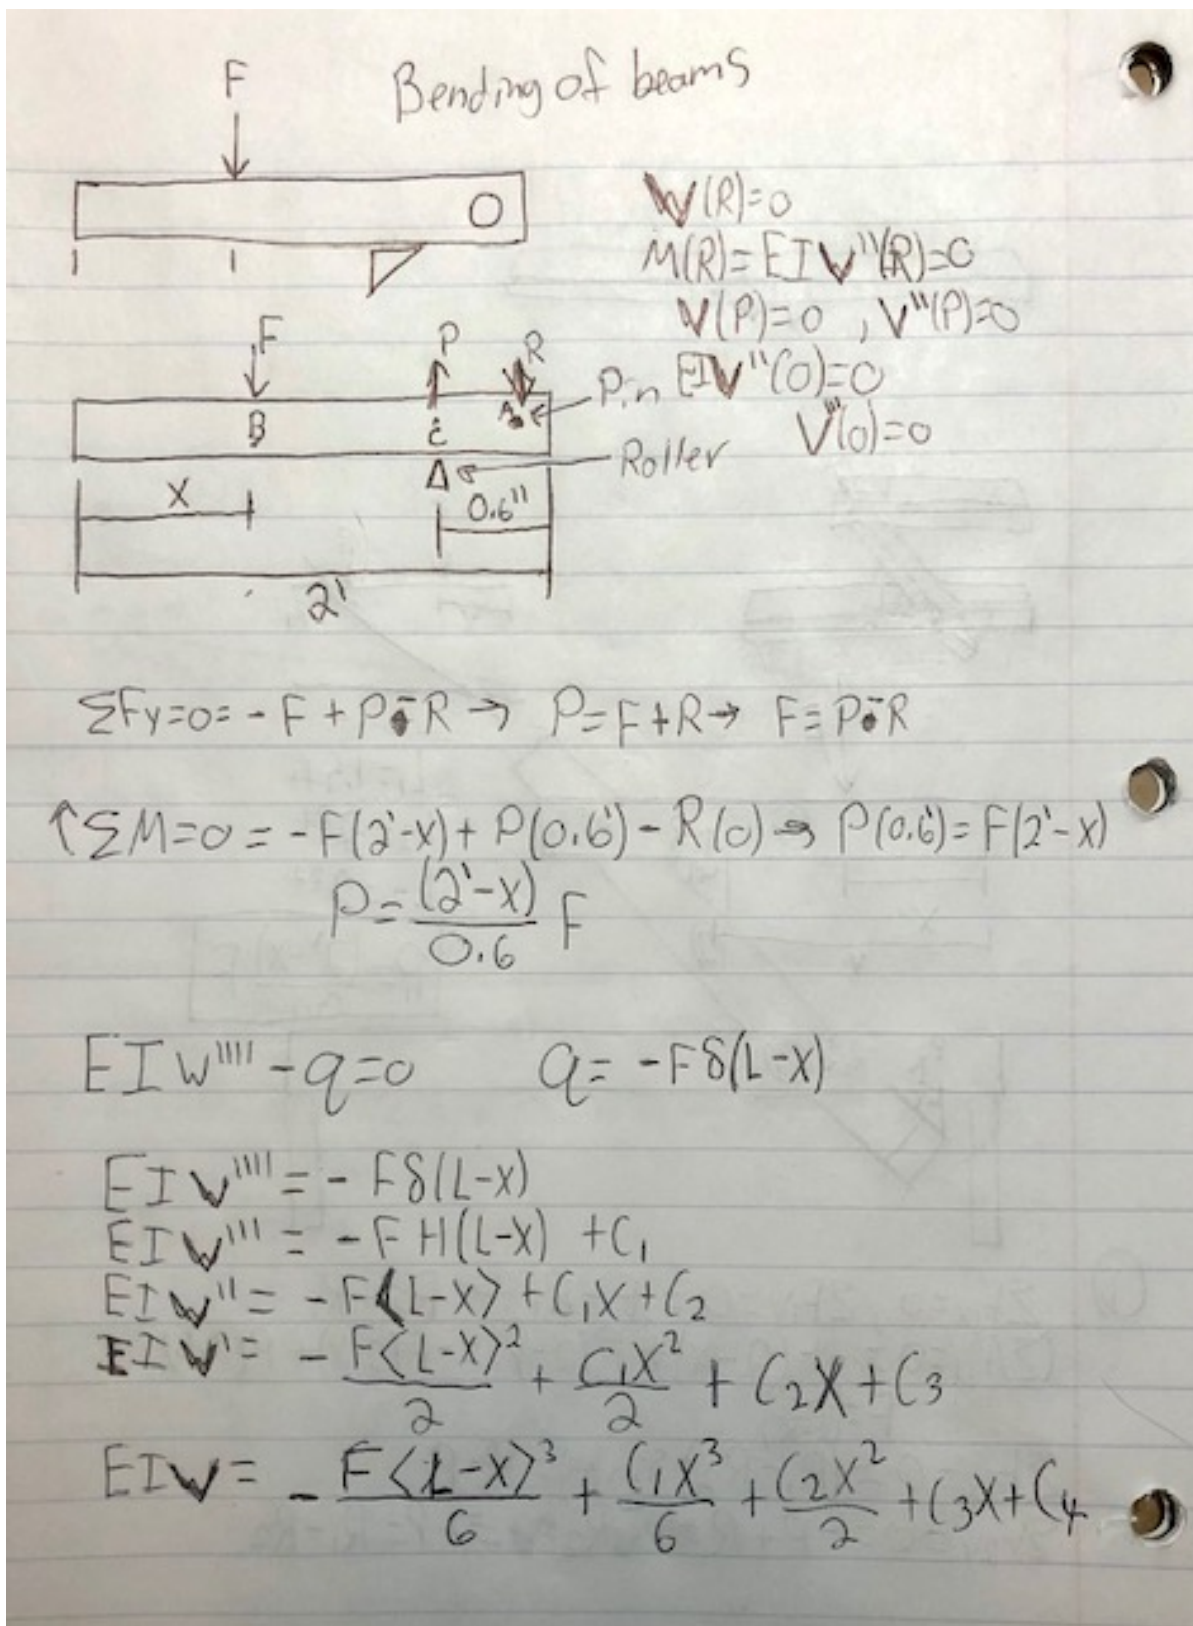 Bending of beams
F
O
W(R)=0
M(R)=EIV''(R)=0
V(P)=0 , V''(P)=0
EIV''(0)=0
V'''(0)=0
F P R
B C A
Pin
Roller
X
0.6"
2'
ΣFy=0= -F+P-R → P=F+R → F=P-R
↑ΣM=0= -F(2'-x)+ P(0.6')-R(0) → P(0.6')=F(2'-x)
P= (2'-x)/0.6 F
EIW''''-q=0 q= -Fδ(L-x)
EIW''''= - Fδ(L-x)
EIW''' = -FH(L-x) +C₁
EIW''= -F<L-x> +C₁x+C₂
EIW'= - F<L-x>²/2 + C₁x²/2 + C₂x+C₃
EIW= - F<L-x>³/6 + C₁x³/6 + C₂x²/2 +C₃x+C₄